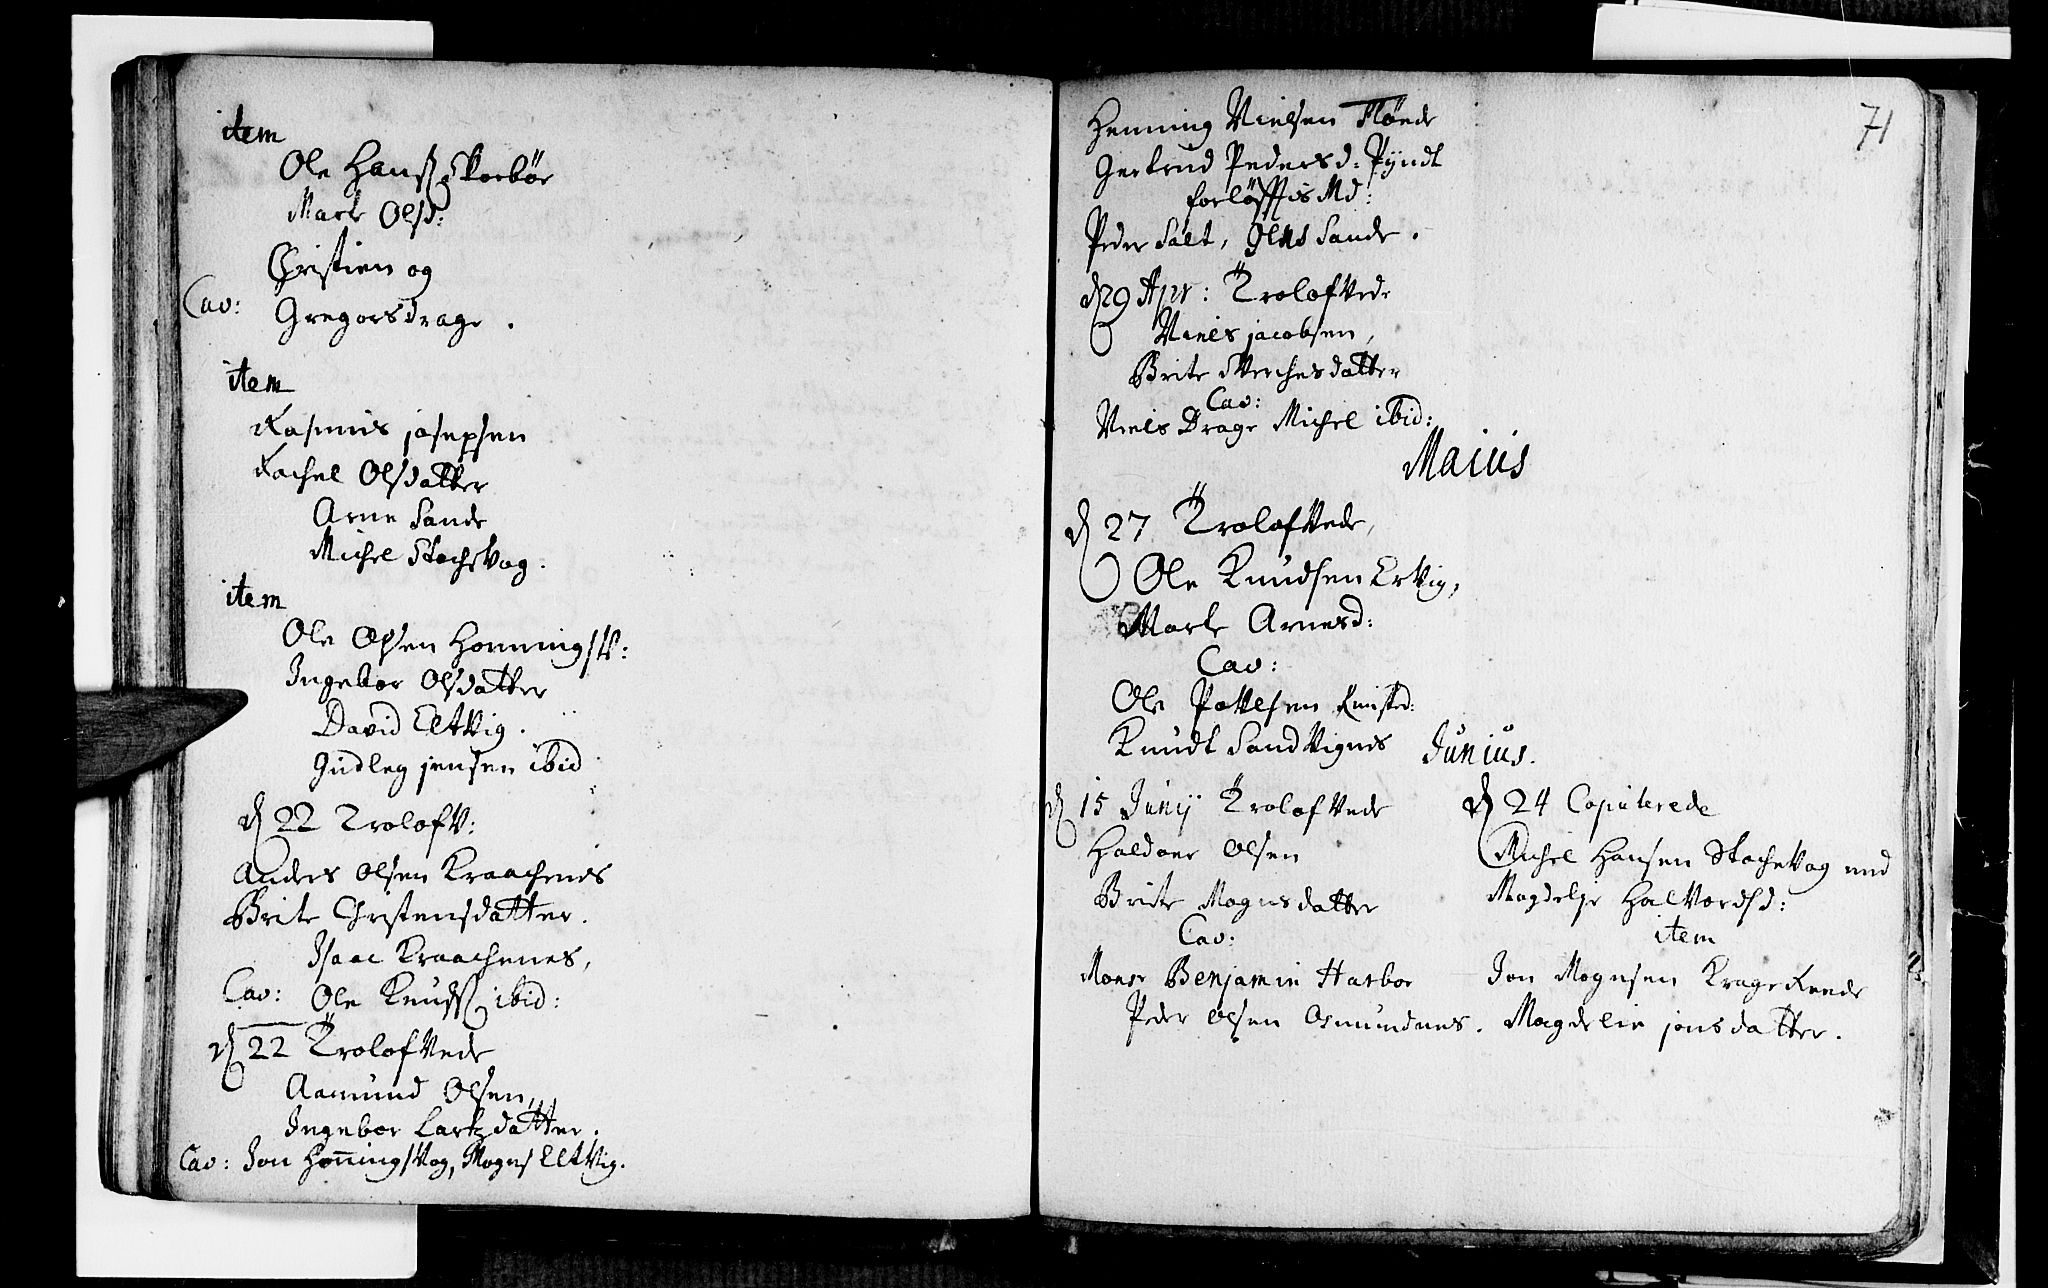 item
Ole Hanss. Skorbör
Marte Olsd:
Christien og
Cav: Gregorsdrage.
item
Rasmus josepsen
Rachel Olsdatter
Arne Sande
Michel Stochevog.
item
Ole Olsen Honningsv:
Ingebor Olsdatter
David Eltvig.
Gudleg jensen ibid
d 22 Trolofv:
Anders Olsen Kraachenes
Brite Christensdatter.
Isaac Kraachenes,
Cav: Ole Knuds. ibid:
d 22 Trolofvede
Aamund Olsen,
Ingebor Lartzdatter.
Cav: Jon Honningsvog, Mogns Eltvig.
71
Henning Nielsen Flöede
Gertrud Pedersd: Pyndt
forlöfftis Md:
Peder Salt, Sande.
d 29 Apr: Trolofvede
Niels jacobsen,
Brite Sverchesdatter
Cav:
Niels Drage Michel ibid:
Maius
d 27 Trolofvede,
Ole Knudsen Ervig,
Marte Arnesd:
Cav:
Ole Povelsen
Knudt Sandvignes
Junius.
d 15 Junij Trolofvede
Haldoer Olsen
Brite Mognsdatter
Cav:
Monsr Benjamin Harboe
Peder Olsen Osmundnes.
d 24 Copulerede
Michel Hansen Stochevog med
Magdelje Halvordsd:
item
Jon Mognsen Kragereede
Magdelie jonsdatter.